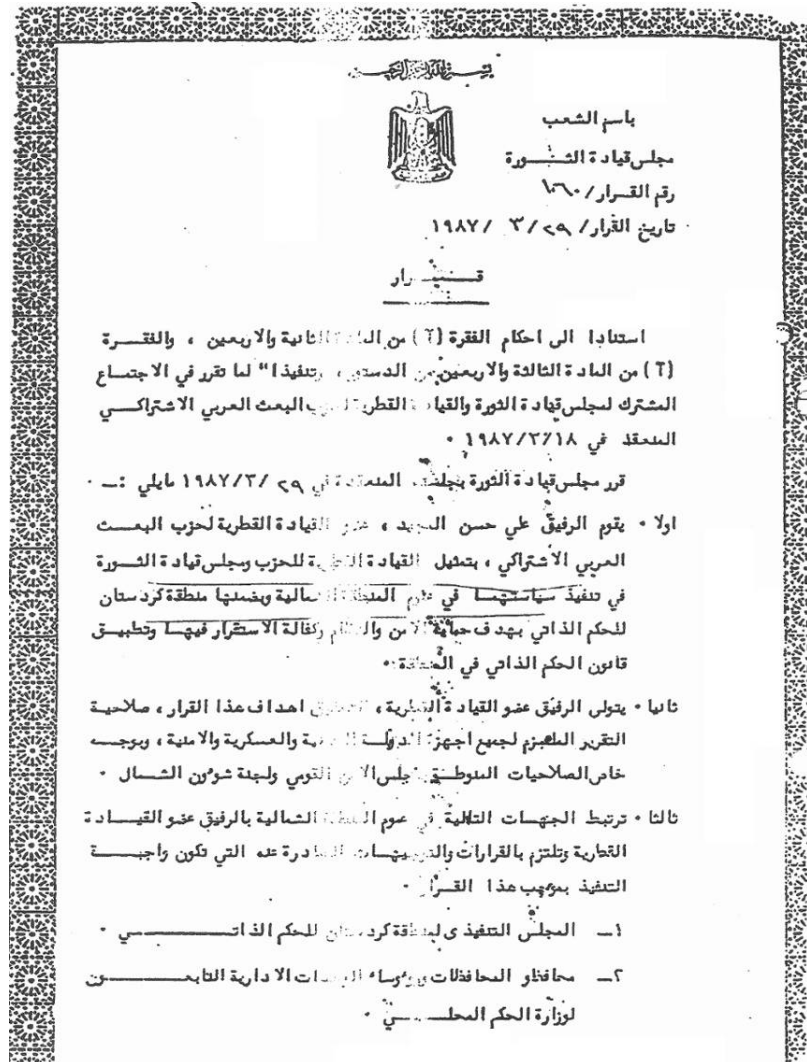 بسم الله الرحمن الرحيم
باسم الشعب
مجلس قيادة الثـــورة
رقم القـرار/
تاريخ القرار/ ٢٩/ ٣ /١٩٨٧
قـــرار
استنادا الى احكام الفقرة (آ) من المادة الثانية والاربعين ، والفقـــرة
(آ) من المادة الثالثة والاربعين من الدستور ، وتنفيذا" لما تقرر في الاجتمـاع
المشترك لمجلس قيادة الثورة والقيادة القطرية لحزب البعث العربي الاشتراكـــي
المنعقد في ١٩٨٧/٣/١٨ ٠
قرر مجلس قيادة الثورة بجلسته المنعقدة في ٢٩ /١٩٨٧/٣ مايلي :ــ ٠
اولا ٠ يقوم الرفيق علي حسن المجيد ، عضو القيادة القطرية لحزب البعــث
العربي الاشتراكي ، بتمثيل القيادة القطرية للحزب ومجلس قيادة الثـــورة
في تنفيذ سياستهمـا في عموم المنطقة الشمالية وبضمنها منطقة كردستان
للحكم الذاتي بهدف حماية الامن والنظام وكفالة الاستقرار فيهـا وتطبيــق
قانون الحكم الذاتي في المنطقة ٠
ثانيا ٠ يتولى الرفيق عضو القيادة القطرية ، لتحقيق اهداف هذا القرار ، صلاحيـة
التقرير الملـزم لجميع اجهزة الدولــة المدنية والعسكرية والامنية ، وبوجــه
خاص الصلاحيات المنوطــة بمجلس الامن القومي ولجنة شؤون الشمـال ٠
ثالثا ٠ ترتبط الجهــات التالية في عموم المنطقة الشمالية بالرفيق عضو القيـــادة
القطرية وتلتزم بالقرارات والتوجيهــات الصادرة عنه التي تكون واجبـــة
التنفيذ بموجب هذا القــرار ٠
١ــ المجلس التنفيذى لمنطقة كردستان للحكم الذاتــــــــي ٠
٢ــ محافظو المحافظات ورؤساء الوحدات الادارية التابعـــــــون
لوزارة الحكم المحلــــي ٠